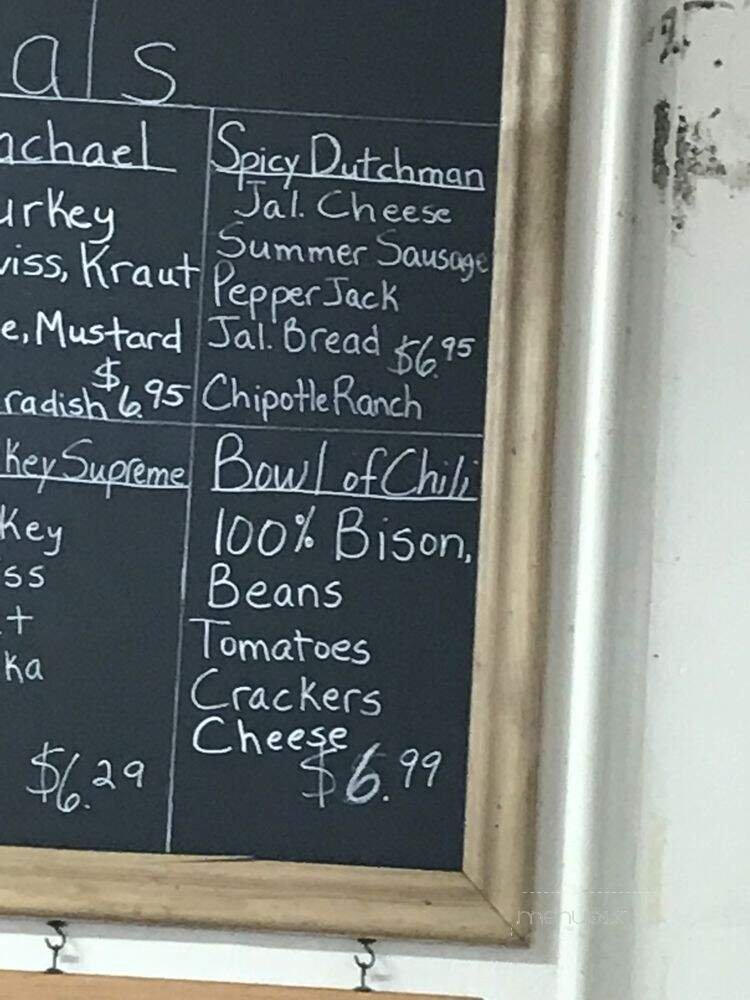 als
achael
urkey
wiss, Kraut
e, Mustard
radish $6.95
Spicy Dutchman
Jal. Cheese
Summer Sausage
Pepper Jack
Jal. Bread $6.95
Chipotle Ranch
key Supreme
key
ss
t
ka
$6.29
Bowl of Chili
100% Bison,
Beans
Tomatoes
Crackers
Cheese
$6.99
menupix